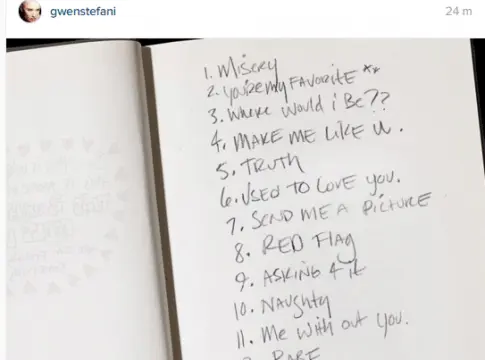 gwenstefani
24 m
1. Misery
2. you're my FAVORITE **
3. Where would i Be??
4. MAKE ME LIKE U.
5. TRUTH
6. USED TO LOVE YOU.
7. SEND ME A PICTURE
8. RED FLAG
9. ASKING 4 it
10. NAUGHTY
11. Me with out you.
RARE